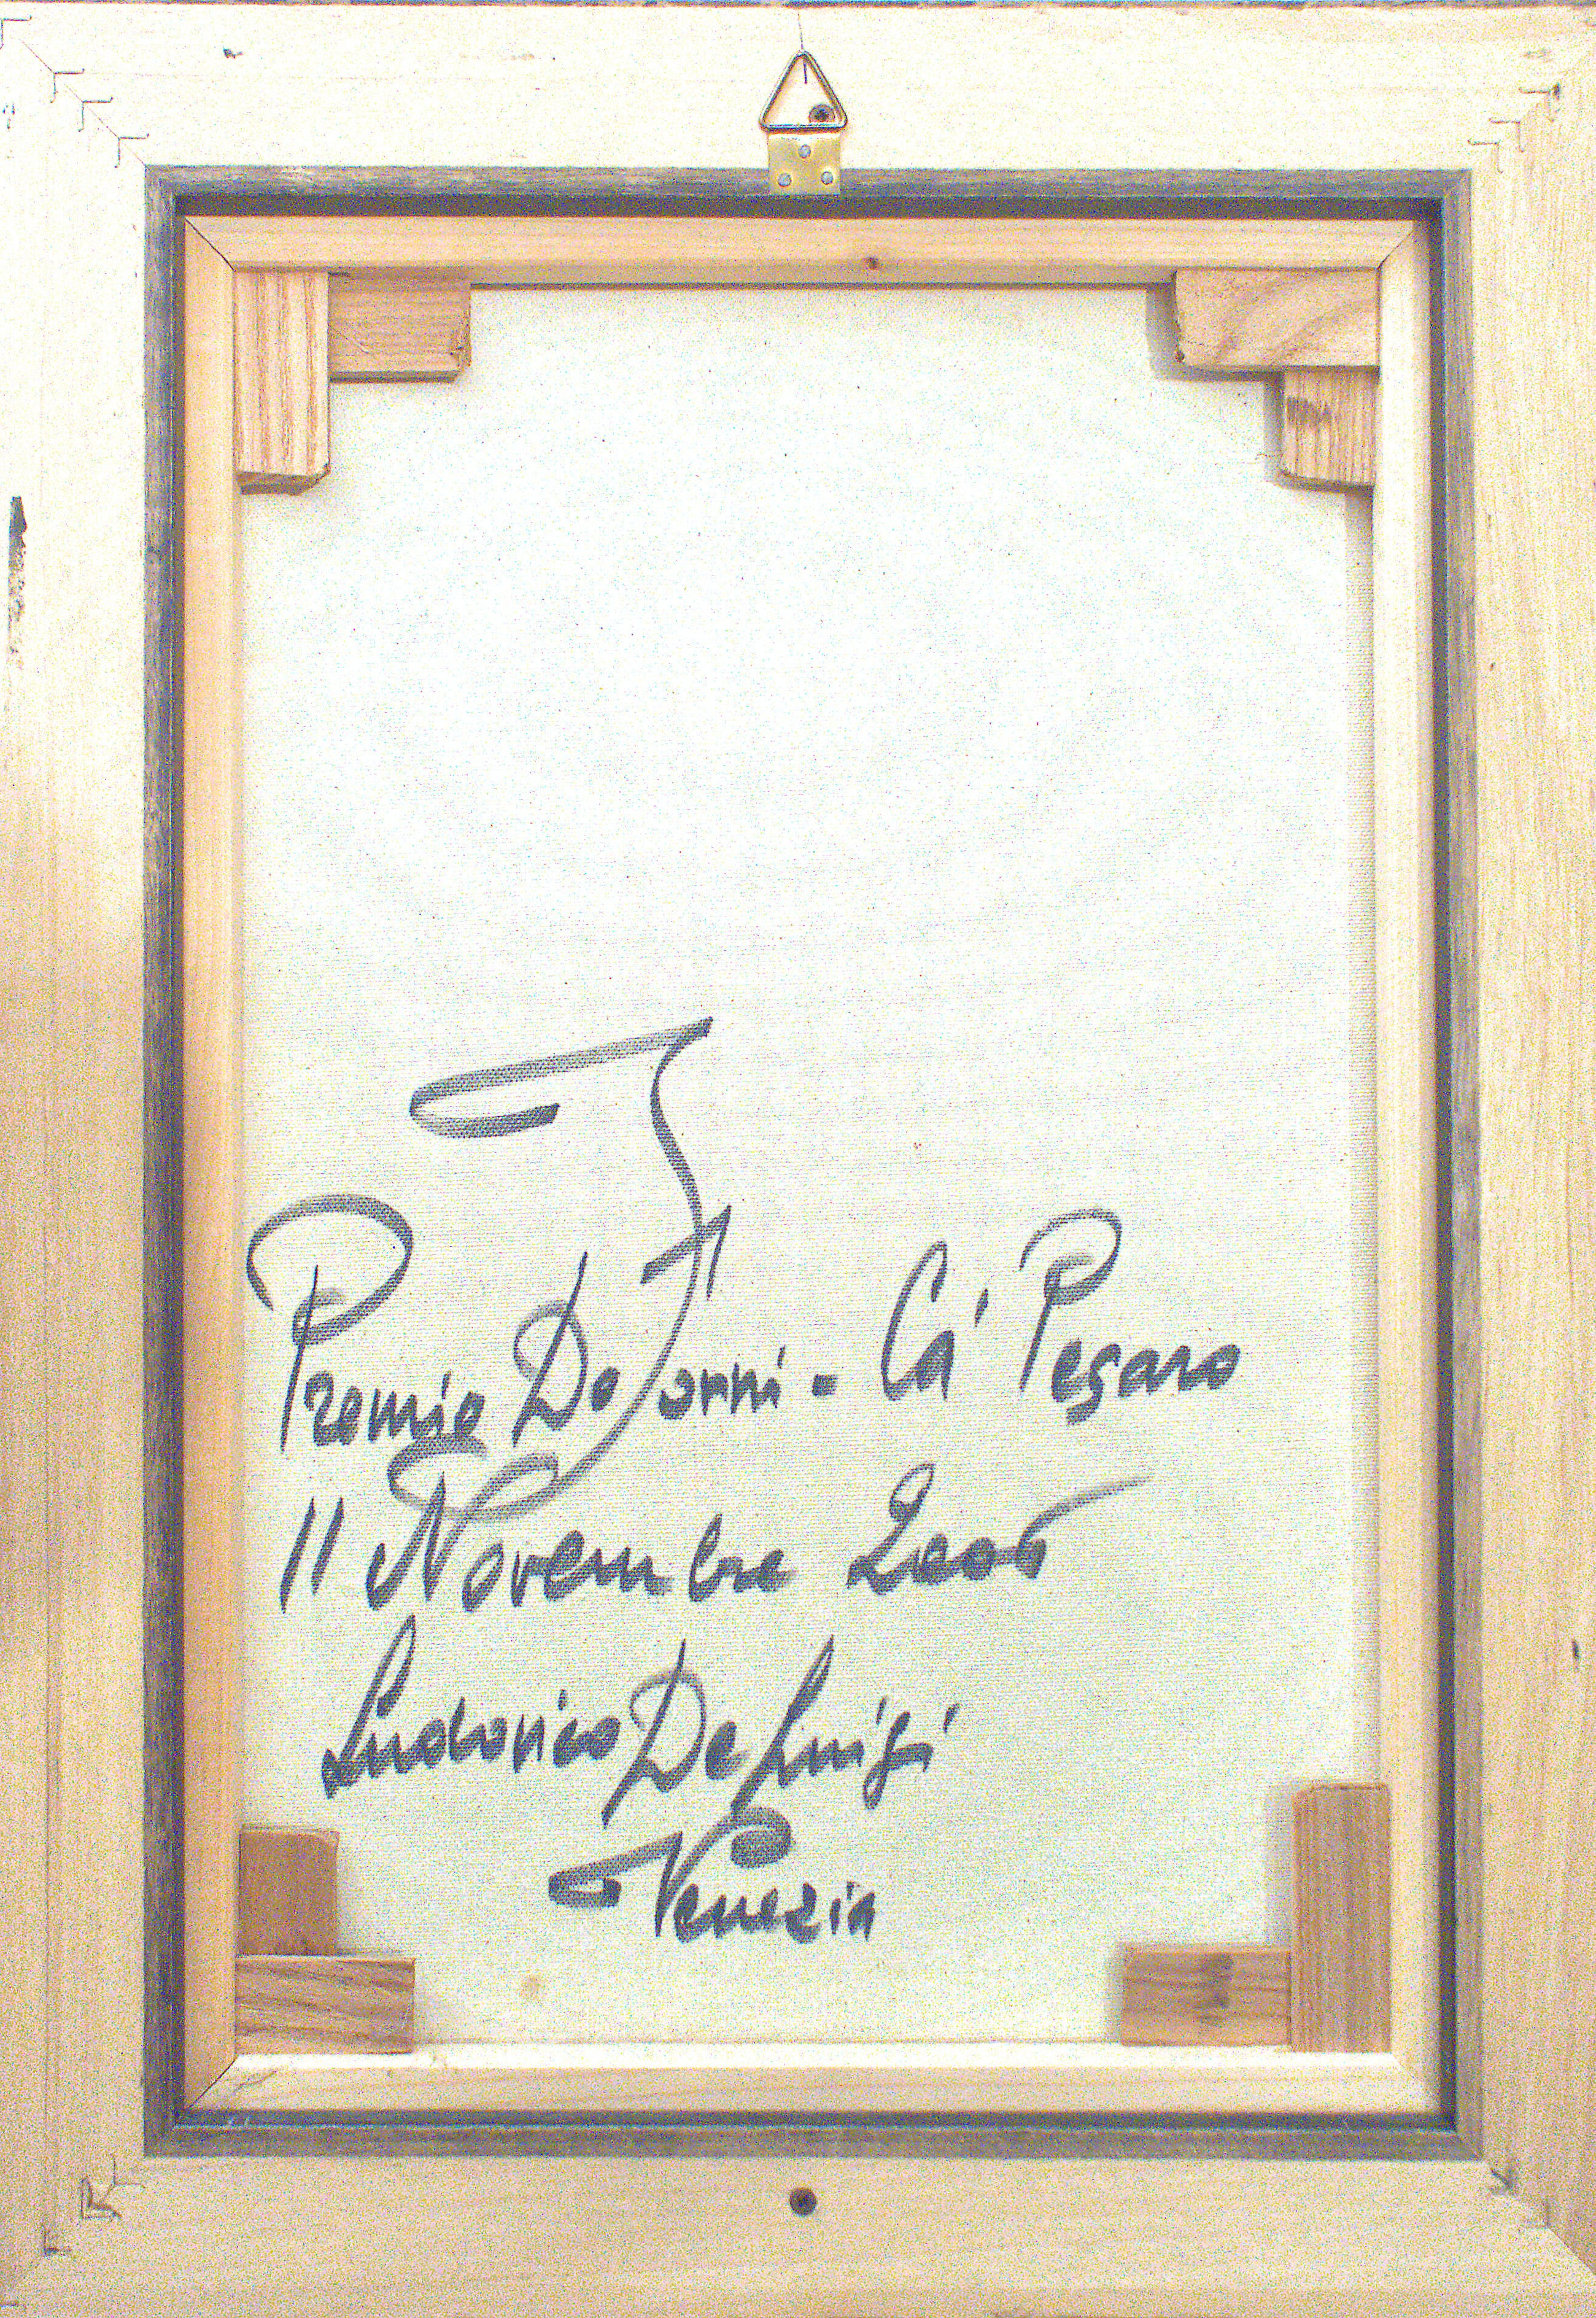 Premio De Jorni - Ca' Pesaro
11 Novembre 2006
Ludovico De Luigi
Venezia